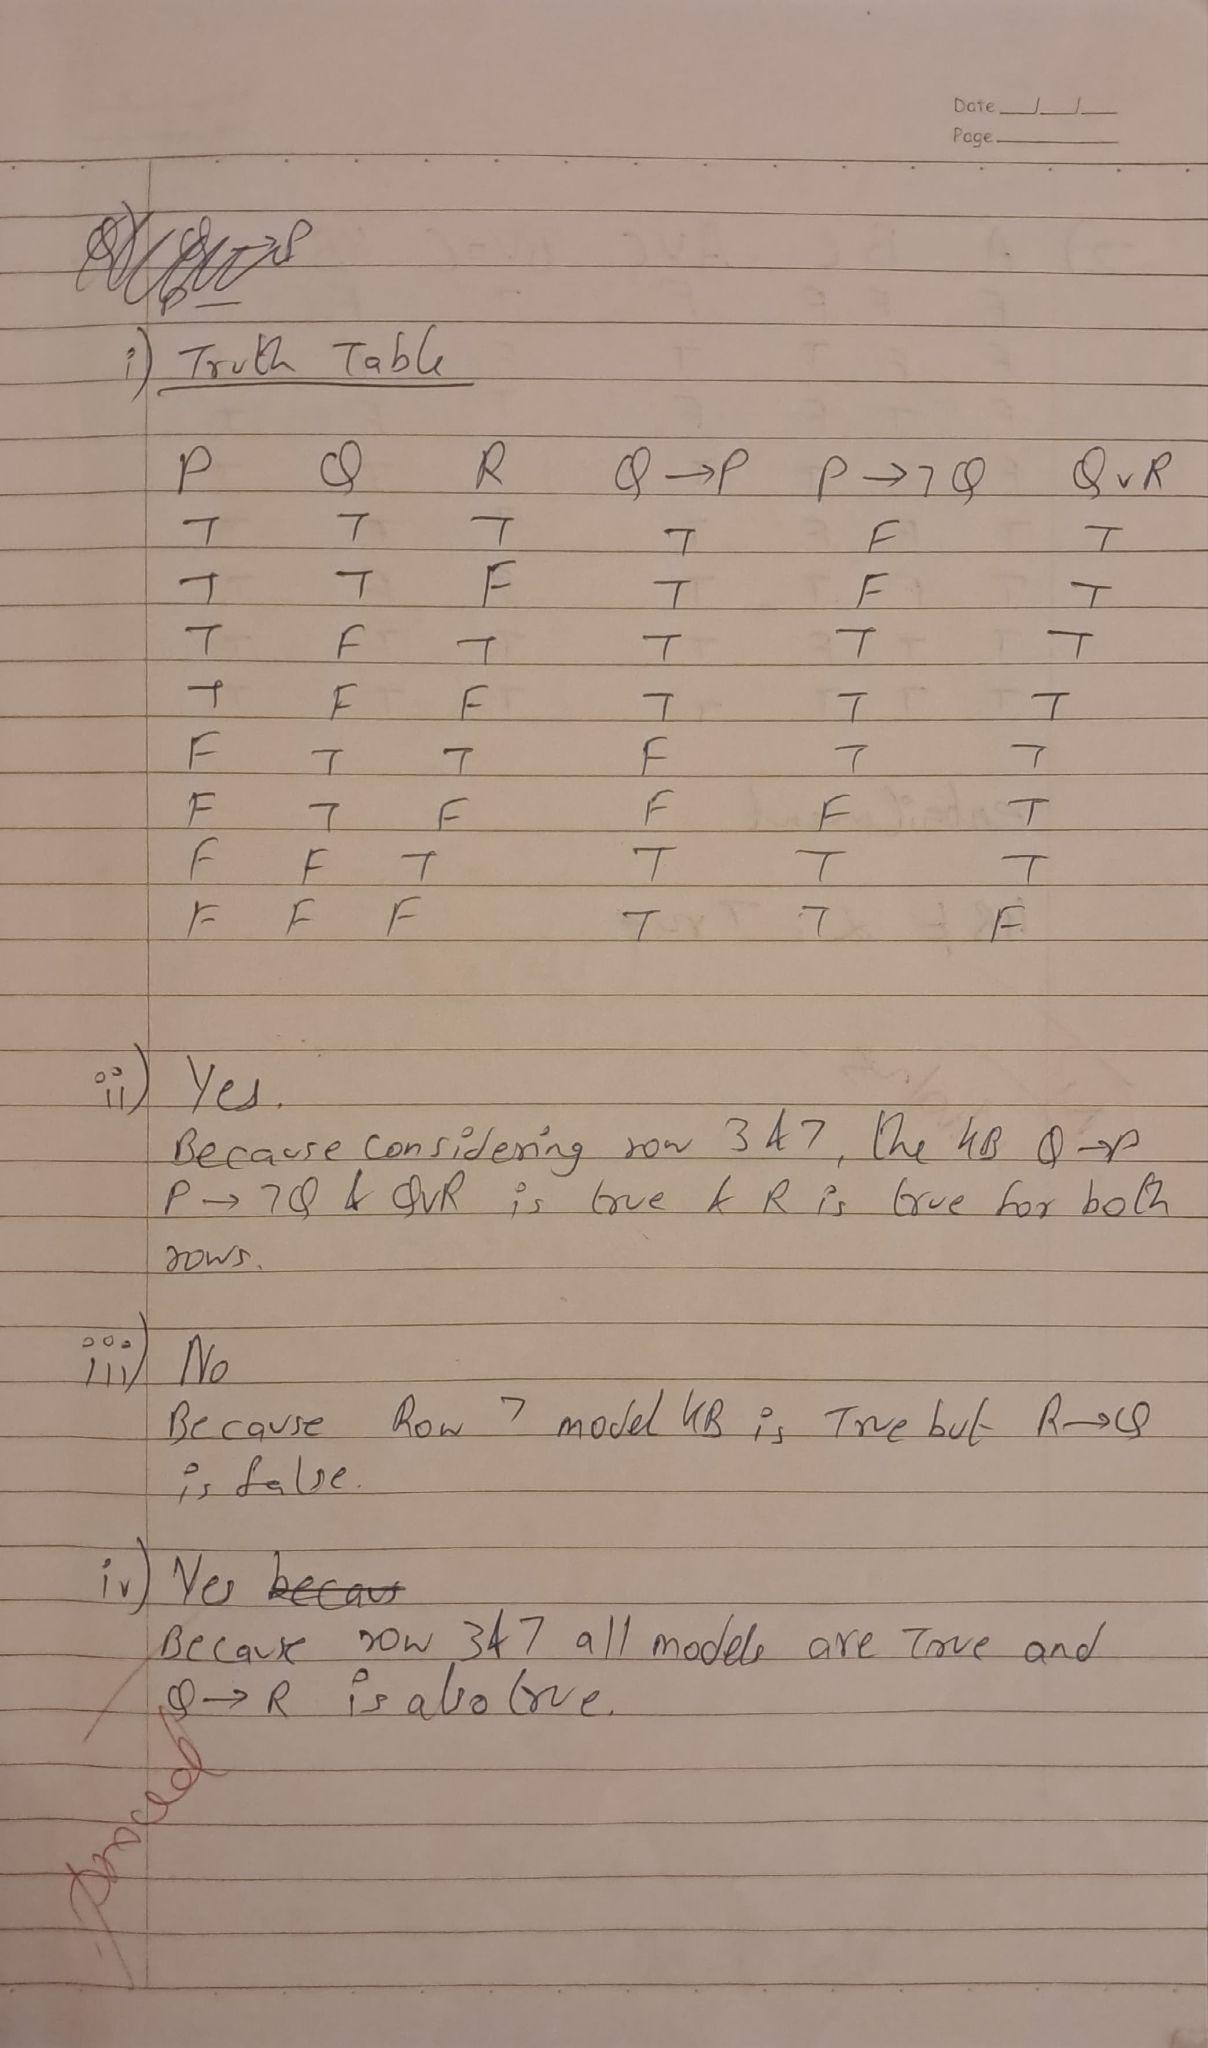 Date / /
Page
i) Truth Table
P Q R Q→P P→¬Q Q∨R
T T T T F T
T T F T F T
T F T T T T
T F F T T T
F T T F T T
F T F F F T
F F T T T T
F F F T T F
ii) Yes.
Because considering row 3 & 7, the KB Q→P
P→¬Q & Q∨R is true & R is true for both
rows.
iii) No
Because Row 7 model KB is True but R→Q
is false.
iv) Yes becaus
Because row 3 & 7 all models are True and
Q→R is also true.